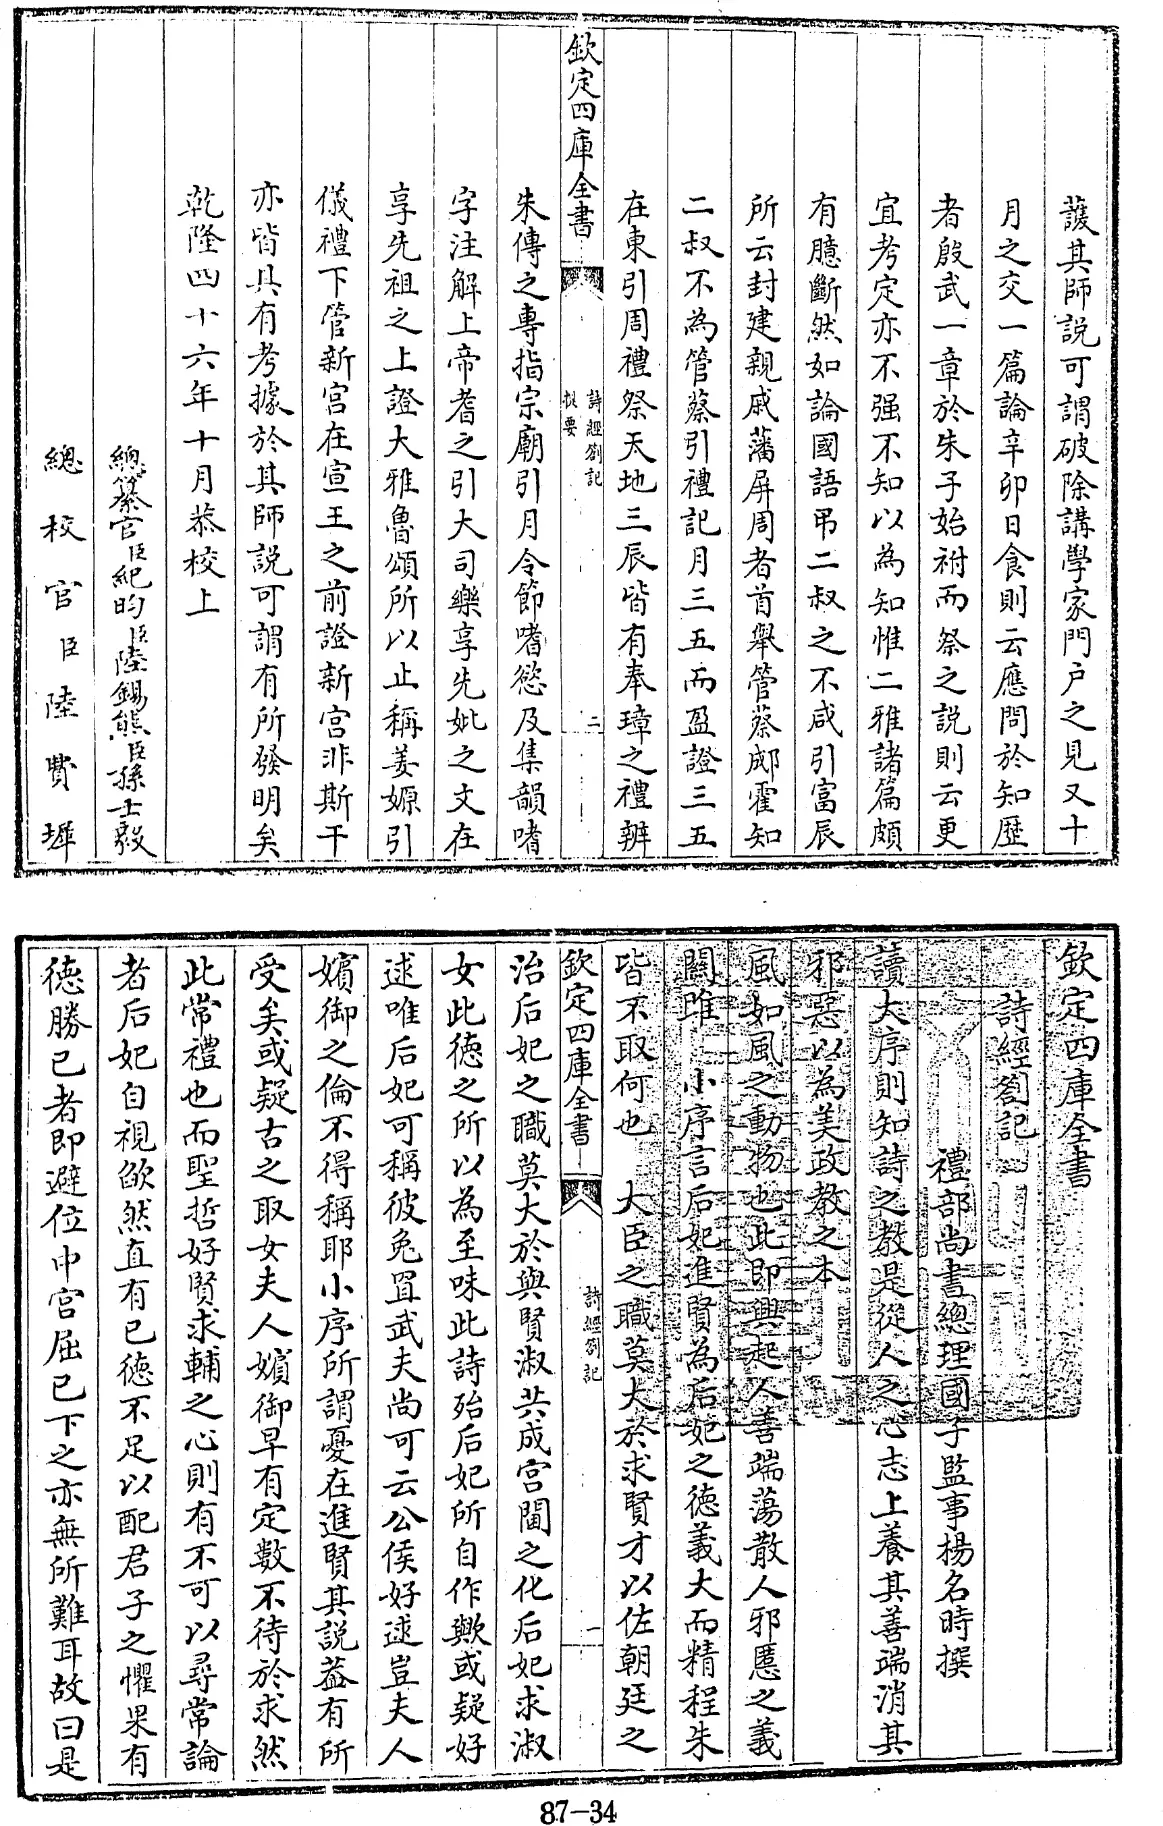 護其師説可謂破除講學家門户之見又十
月之交一篇論辛卯日食則云應問於知歴
者殷武一章於朱子始祔而祭之説則云更
宜考定亦不强不知以為知惟二雅諸篇頗
有臆斷然如論國語弔二叔之不咸引富辰
所云封建親戚藩屏周者首舉管蔡郕霍知
二叔不為管蔡引禮記月三五而盈證三五
在東引周禮祭天地三辰皆有奉璋之禮辨
欽定四庫全書
詩經劄記
提要
二
朱傳之專指宗廟引月令節嗜慾及集韻嗜
字注解上帝耆之引大司樂享先妣之文在
享先祖之上證大雅魯頌所以止稱姜嫄引
儀禮下管新宫在宣王之前證新宫非斯干
亦皆具有考據於其師説可謂有所發明矣
乾隆四十六年十月恭校上
總纂官臣紀昀臣陸錫熊臣孫士毅
總校官臣陸費墀
欽定四庫全書
詩經劄記
禮部尚書總理國子監事楊名時撰
讀大序則知詩之教是從人之心志上養其善端消其
邪惡以為美政教之本
風如風之動物也此即興起人善端蕩散人邪慝之義
關雎 小序言后妃進賢為后妃之德義大而精程朱
皆不取何也 大臣之職莫大於求賢才以佐朝廷之
欽定四庫全書
詩經劄記
一
治后妃之職莫大於與賢淑共成宫闈之化后妃求淑
女此德之所以為至味此詩殆后妃所自作歟或疑好
逑唯后妃可稱彼兔罝武夫尚可云公侯好逑豈夫人
嬪御之倫不得稱耶小序所謂憂在進賢其説葢有所
受矣或疑古之取女夫人嬪御早有定數不待於求然
此常禮也而聖哲好賢求輔之心則有不可以尋常論
者后妃自視欿然直有已德不足以配君子之懼果有
德勝已者即避位中宫屈已下之亦無所難耳故曰是
87-34